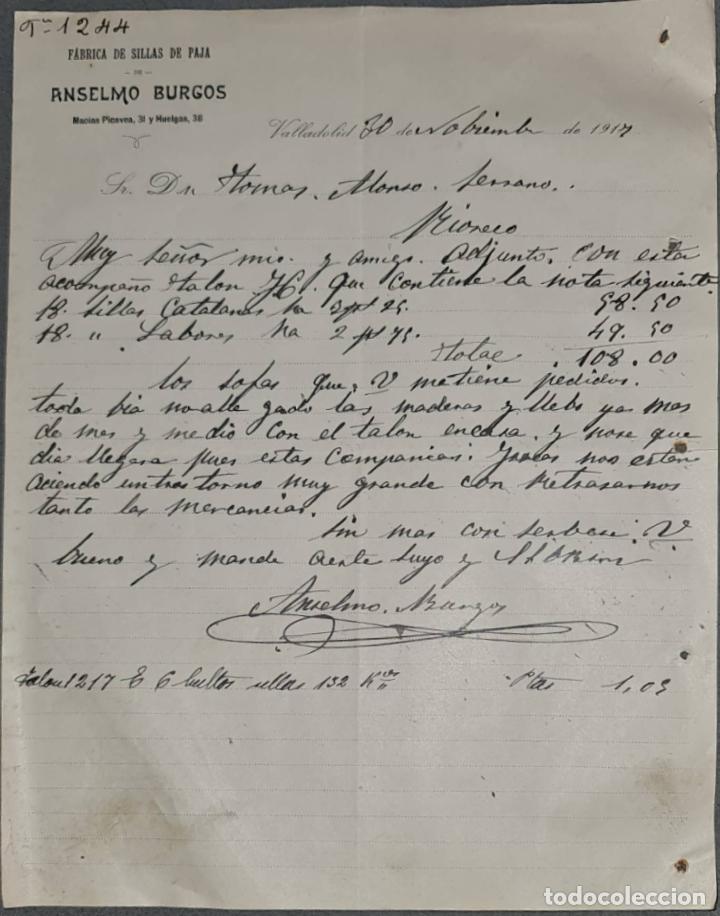 Tn 1244
FÁBRICA DE SILLAS DE PAJA
DE
ANSELMO BURGOS
Macías Picavea, 31 y Huelgas, 38
Valladolid 30 de Nobiembre de 1917
Sr. Dn Tomas. Alonso. Serrano.
Rioseco
Muy Señor mio. y amigo. Adjunto. con esta
acompaño talon que contiene la nota siguiente
18. Sillas Catalanas ha 3 pt 25. 58.50
18. " Labores ha 2 pt 75. 49.50
Total . 108.00
Los sofas que. V me tiene pedidos.
toda bia no alle gado las maderas y llebo ya mas
de mes y medio con el talon encasa. y nose que
dia llegara pues estas Companias. nos estan
aciendo un tras torno muy grande con retrasarnos
tanto las mercancias.
Sin mas con serbese. V.
bueno y mande a este suyo y
Anselmo. Burgos
talon 1217 E 6 bultos sillas 132 Ptas 1,05
todocoleccion